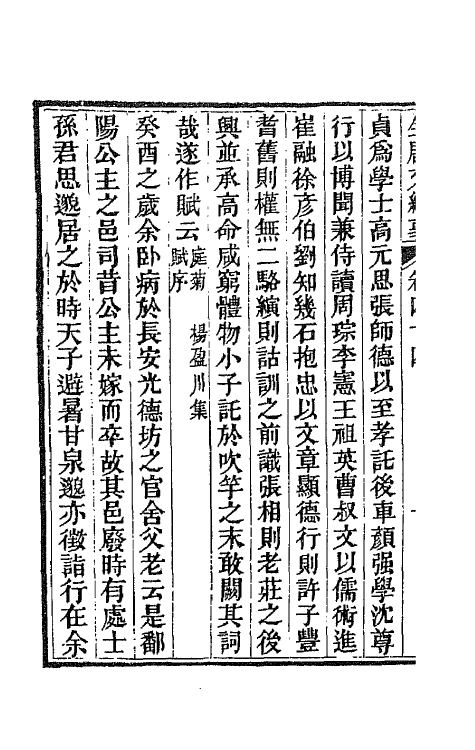 貞爲學士高元思張師德以至孝託後車顏强學沈尊
行以博聞兼侍讀周琮李憲王祖英曹叔文以儒術進
崔融徐彥伯劉知幾石抱忠以文章顯德行則許子豐
耆舊則權無二駱縯則詁訓之前識張相則老莊之後
興並承高命咸窮體物小子託於吹竽之末敢闕其詞
哉遂作賦云庭菊賦序 楊盈川集
癸酉之歲余卧病於長安光德坊之官舍父老云是鄱
陽公主之邑司昔公主未嫁而卒故其邑廢時有處士
孫君思邈居之於時天子避暑甘泉邈亦徵詣行在余